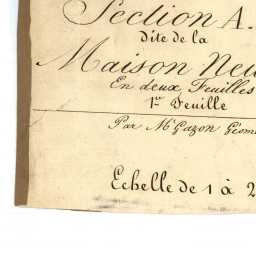 Section A.
dite de la
Maison Neu
En deux Feuilles
1re Feuille
Par Mr Gazon Géom
Echelle de 1 à 2